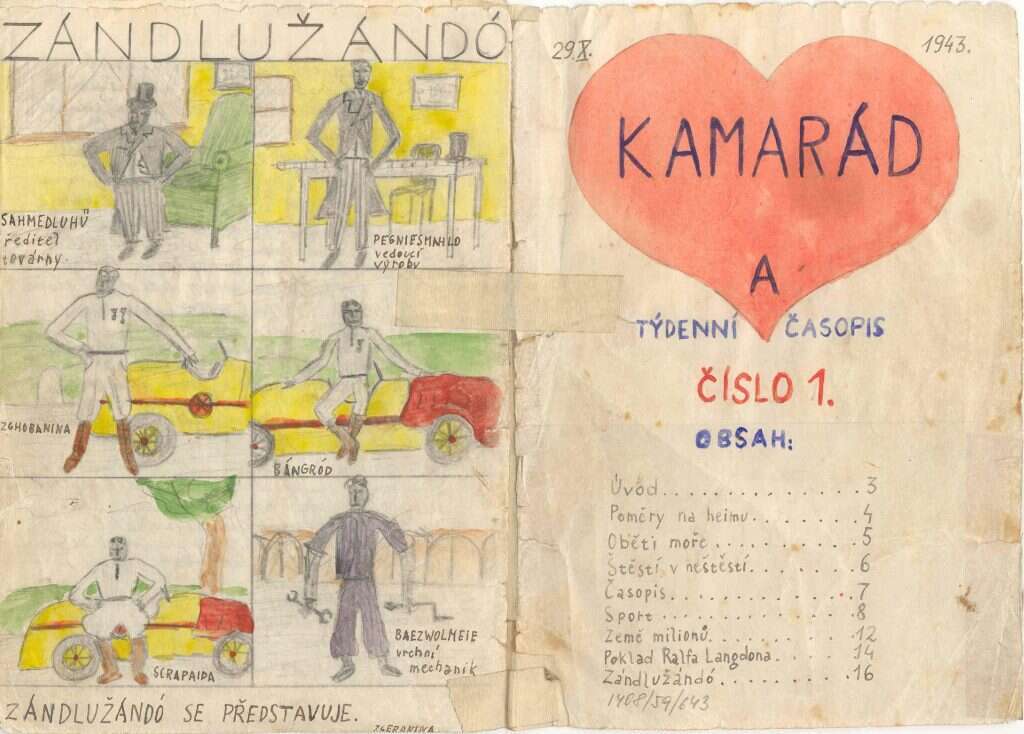 ZÁNDLUŽÁNDÓ
SAHMEDLUHŮ
ředitel
továrny.
PEGNIESMAHLO
vedoucí
výroby
ZGHOBANINA
BÁNGRÓD
SCRAPAIDA
BAEZWOLMEIE
vrchní
mechanik
ZÁNDLUŽÁNDÓ SE PŘEDSTAVUJE.
ZGERONINA
29.X. 1943.
KAMARÁD
A
TÝDENNÍ ČASOPIS
ČÍSLO 1.
OBSAH:
Úvod..............3
Poměry na heimu.......4
Oběti moře..........5
Štěstí v neštěstí........6
Časopis............7
Sport.............8
Země milionů........12
Poklad Ralfa Langdona....14
Zándlužándó.........16
1408/59/643